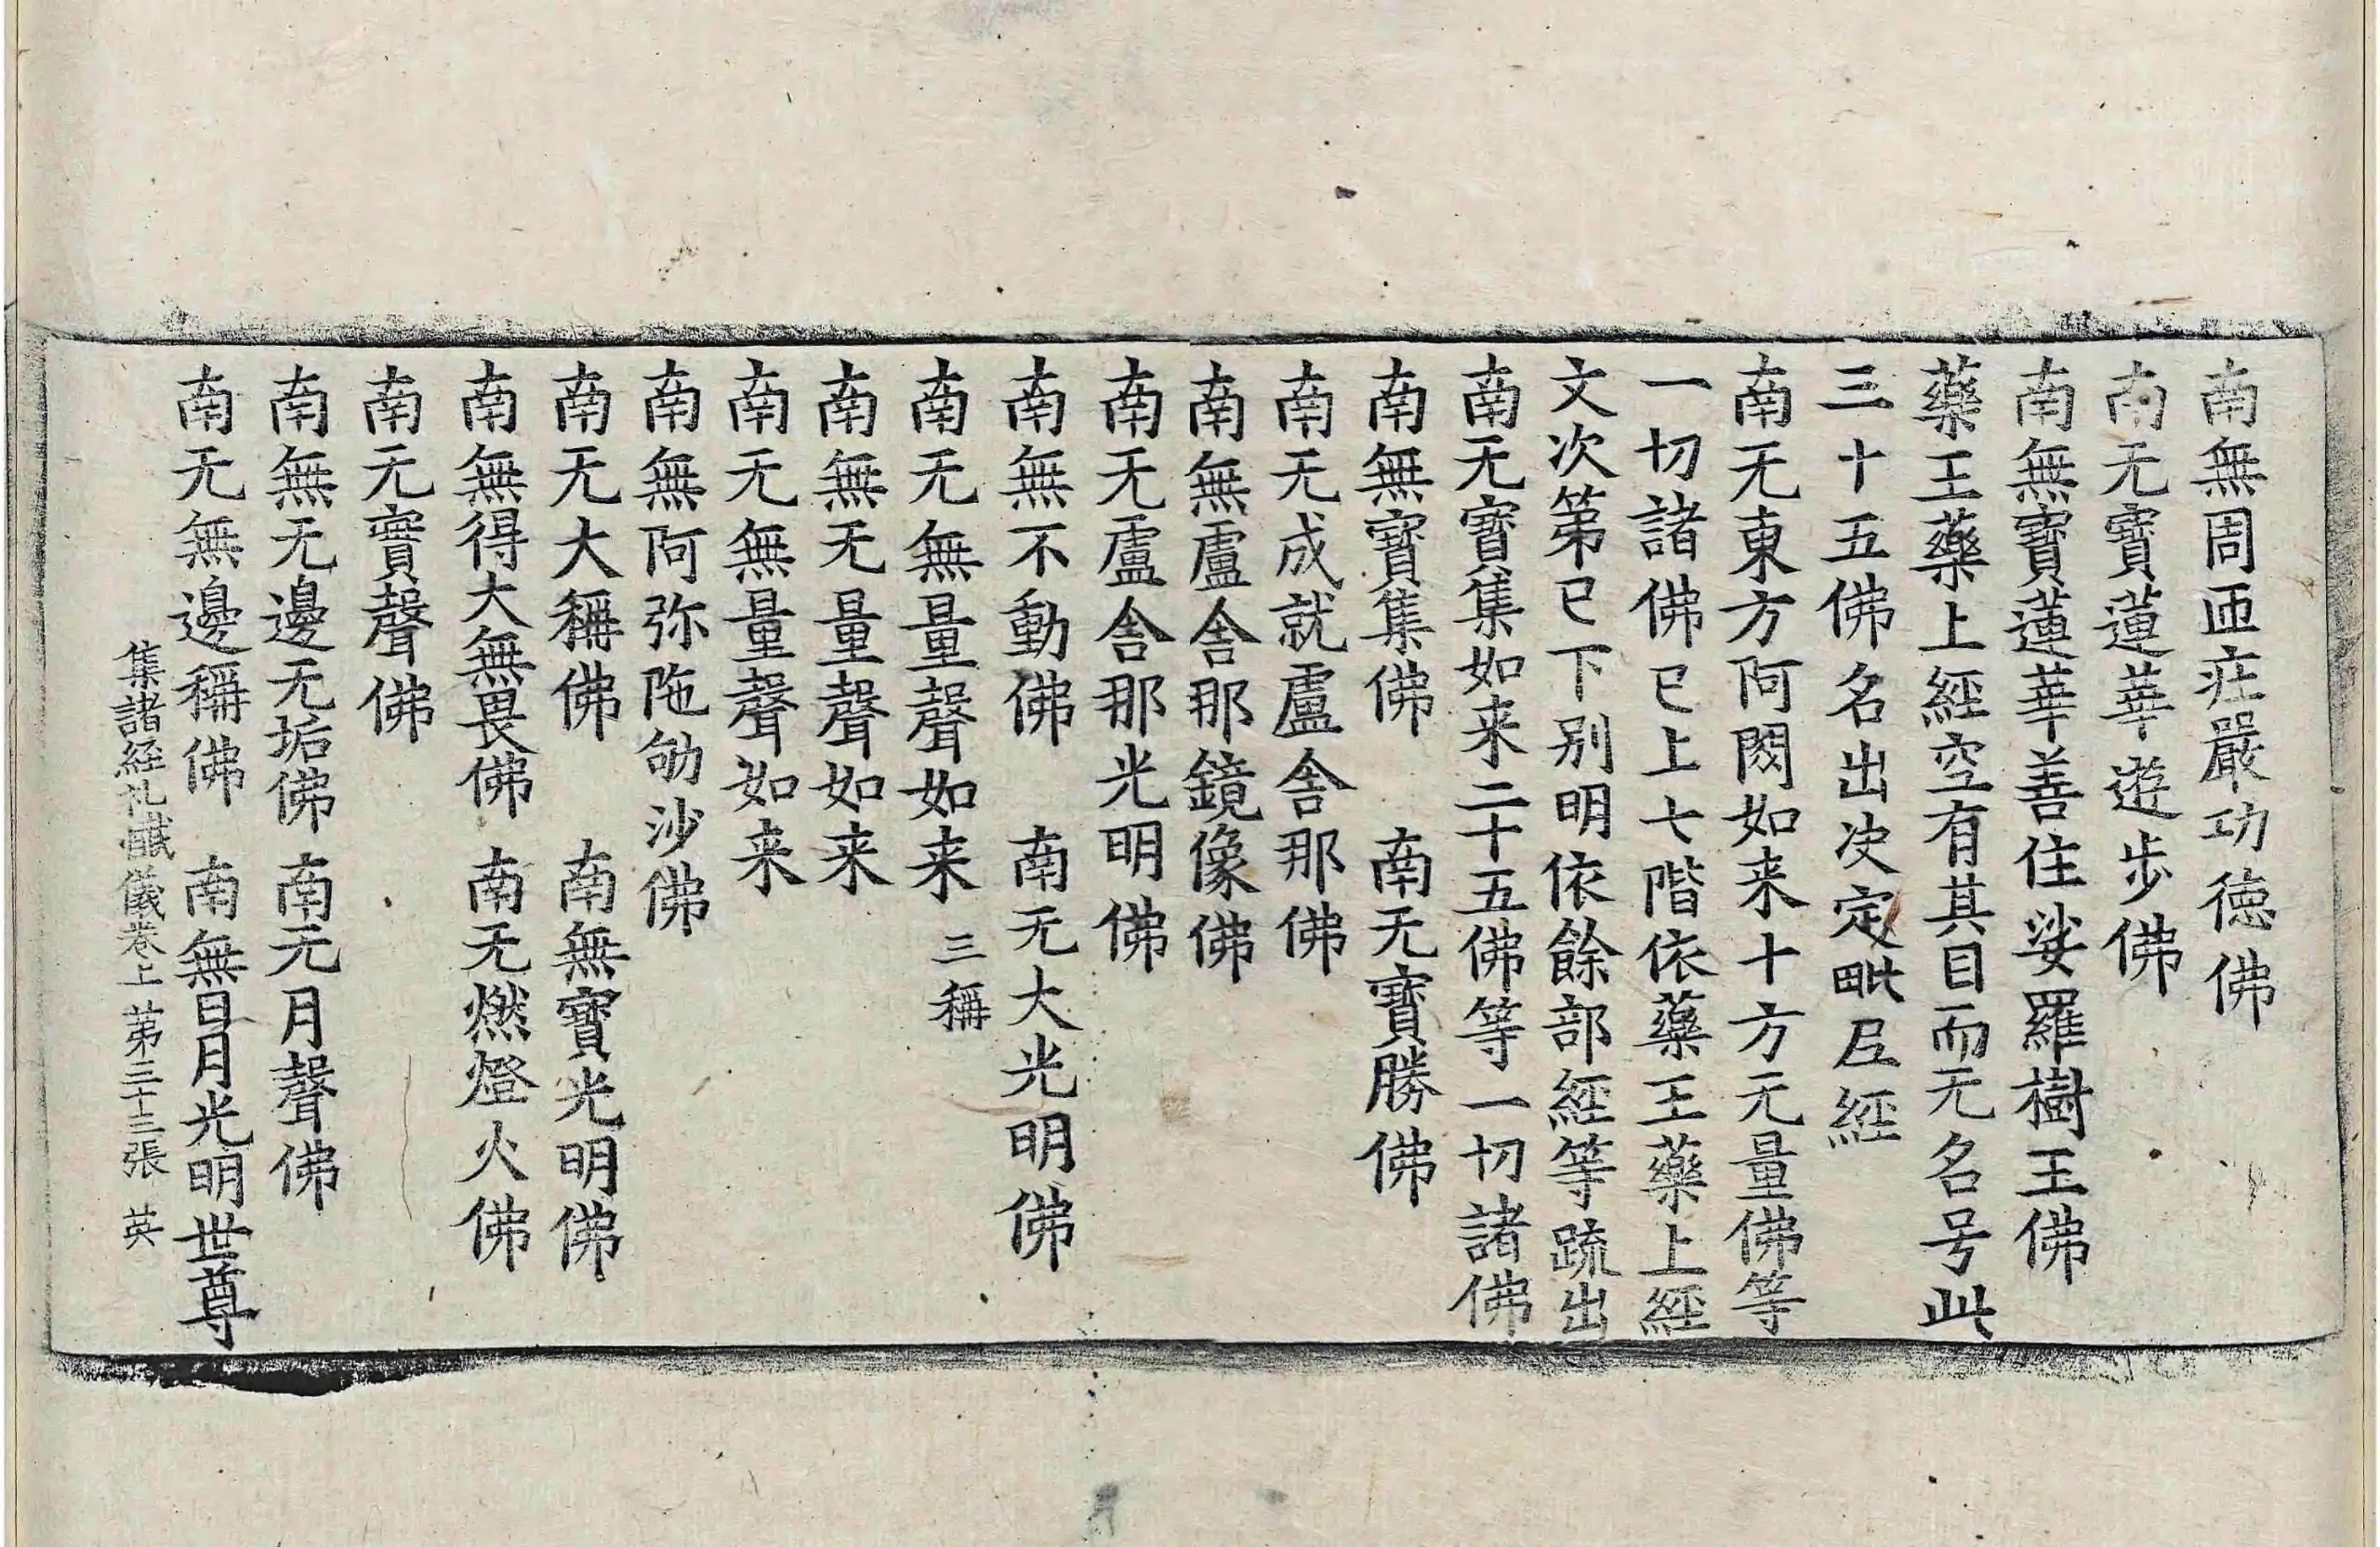 南無周匝疘嚴功徳佛
南无寶蓮華遊步佛
南無寶蓮華善住娑羅樹王佛
藥王藥上經空有其目而无名号此
三十五佛名出决定毗𡰱經
南无東方阿閦如来十方无量佛等
一切諸佛已上七階依藥王藥上經
文次第已下别明依餘部經等䟽出
南无寶集如来二十五佛等一切諸佛
南無寶集佛　南无寶勝佛
南无成就盧舎那佛
南無盧舎那鏡像佛
南无盧舎那光明佛
南無不動佛　南无大光明佛
南无無量聲如来　三稱
南無无量聲如来
南无無量聲如来
南無阿弥陁劬沙佛
南无大稱佛　南無寶光明佛
南無得大無畏佛　南无燃燈火佛
南无寶聲佛
南無无邊无垢佛　南无月聲佛
南无無邊稱佛　南無日月光明世尊
集諸經礼懺儀卷上　第三十三張　英